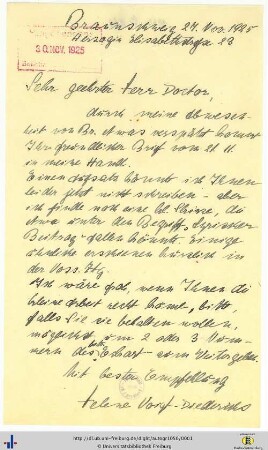 Braunschweig 27. Nov. 1925
Herzogin Elisabethstraße 23
30. NOV. 1925
Sehr geehrter Herr Doctor,
durch meine Abwesen-
heit von Br. etwas verspätet kommt
Ihr freundlicher Brief vom 21. 11.
in meine Hand.
Einen Aufsatz könnte ich Ihnen
leider jetzt nicht schreiben – aber
ich finde noch eine kl. Skizze, die
etwa unter den Begriff „lyrischer
Beitrag“ fallen könnte. Einige
ähnliche erschienen kürzlich in
der Voss. Ztg.
Ich wäre froh, wenn Ihnen die
kleine Arbeit recht käme, bitte,
falls Sie sie behalten wollen,
möglichst um 2 oder 3 Num-
mern des Eckart zum Weitergeben.
Mit bester Empfehlung
Helene Voigt-Diederichs
http://dl.ub.uni-freiburg.de/diglit/autogr1096/0001
© Universitätsbibliothek Freiburg